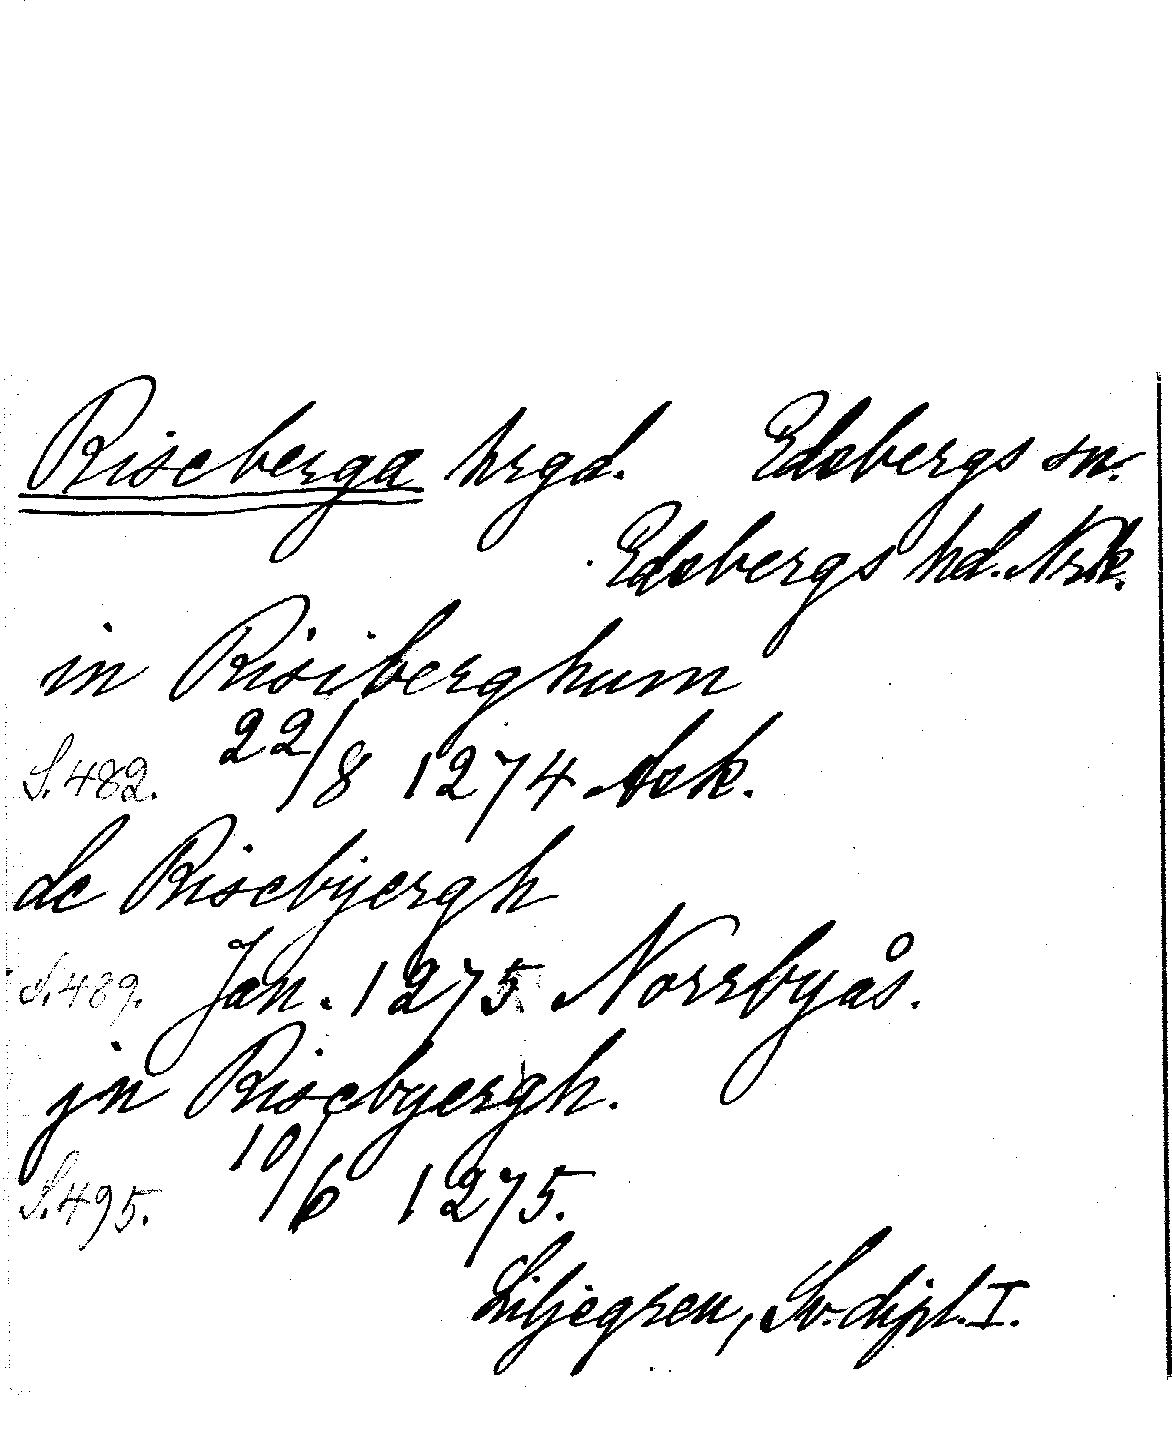 Riseberga hrgd. Edsbergs sn.
Edsbergs hd. Nrk.
in Risiberghum
S. 482. 22/8 1274 Ask.
de Risebyergh
S. 489. Jan. 1275 Norrbyås.
jn Risebyergh.
S. 495. 10/6 1275.
Liljegren, Sv. dipl. I.